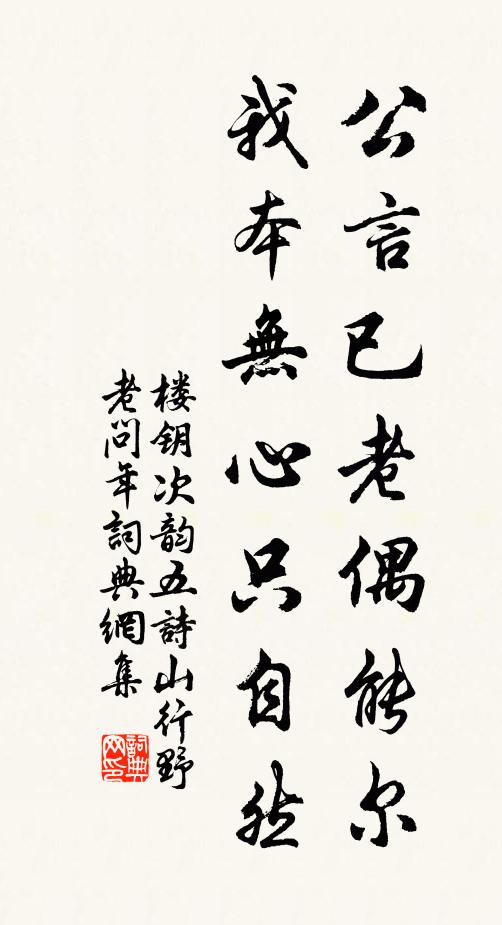 公言已老偶能尔
我本無心只自然
楼钥次韵五詩山行野
老問年詞典網集
詞典网印